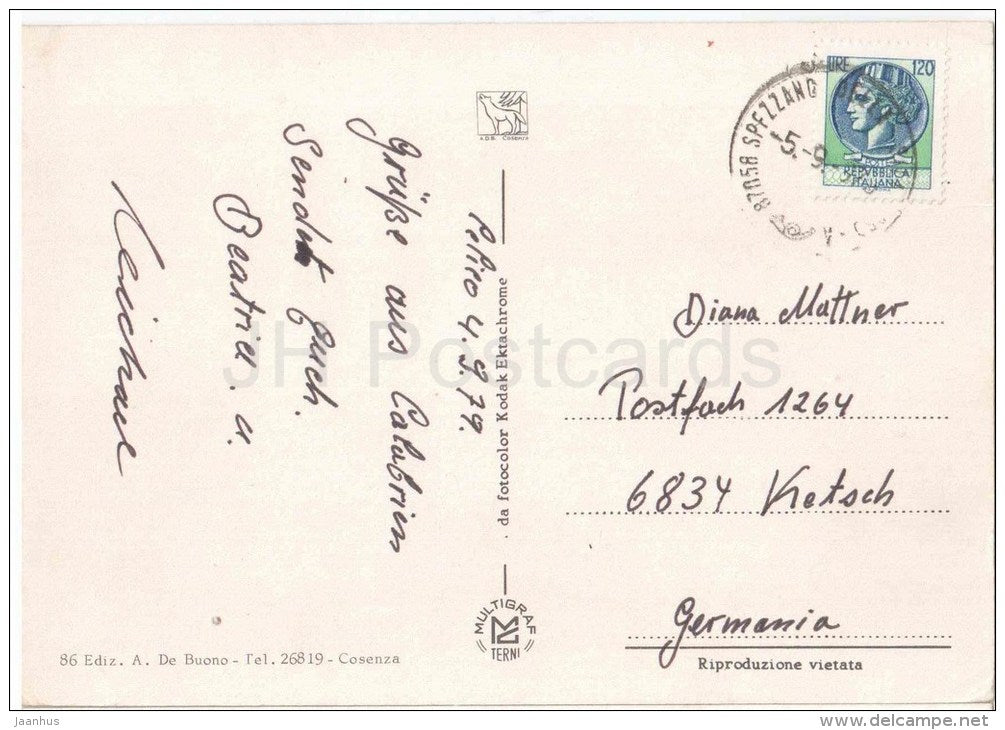 LIRE 120
POSTE
REPVBBLICA
ITALIANA
87058 SPEZZANO
5.-9.
A.D.B. Cosenza
4.9.79.
Grüße aus Calabrien
Sendet Euch
Beatrix u.
Michael
da fotocolor Kodak Ektachrome
MULTIGRAF
TERNI
Diana Mattner
Postfach 1264
6834 Ketsch
Germania
Riproduzione vietata
86 Ediz. A. De Buono - Tel. 26819 - Cosenza
JH Postcards
Jaanhus
www.delcampe.net